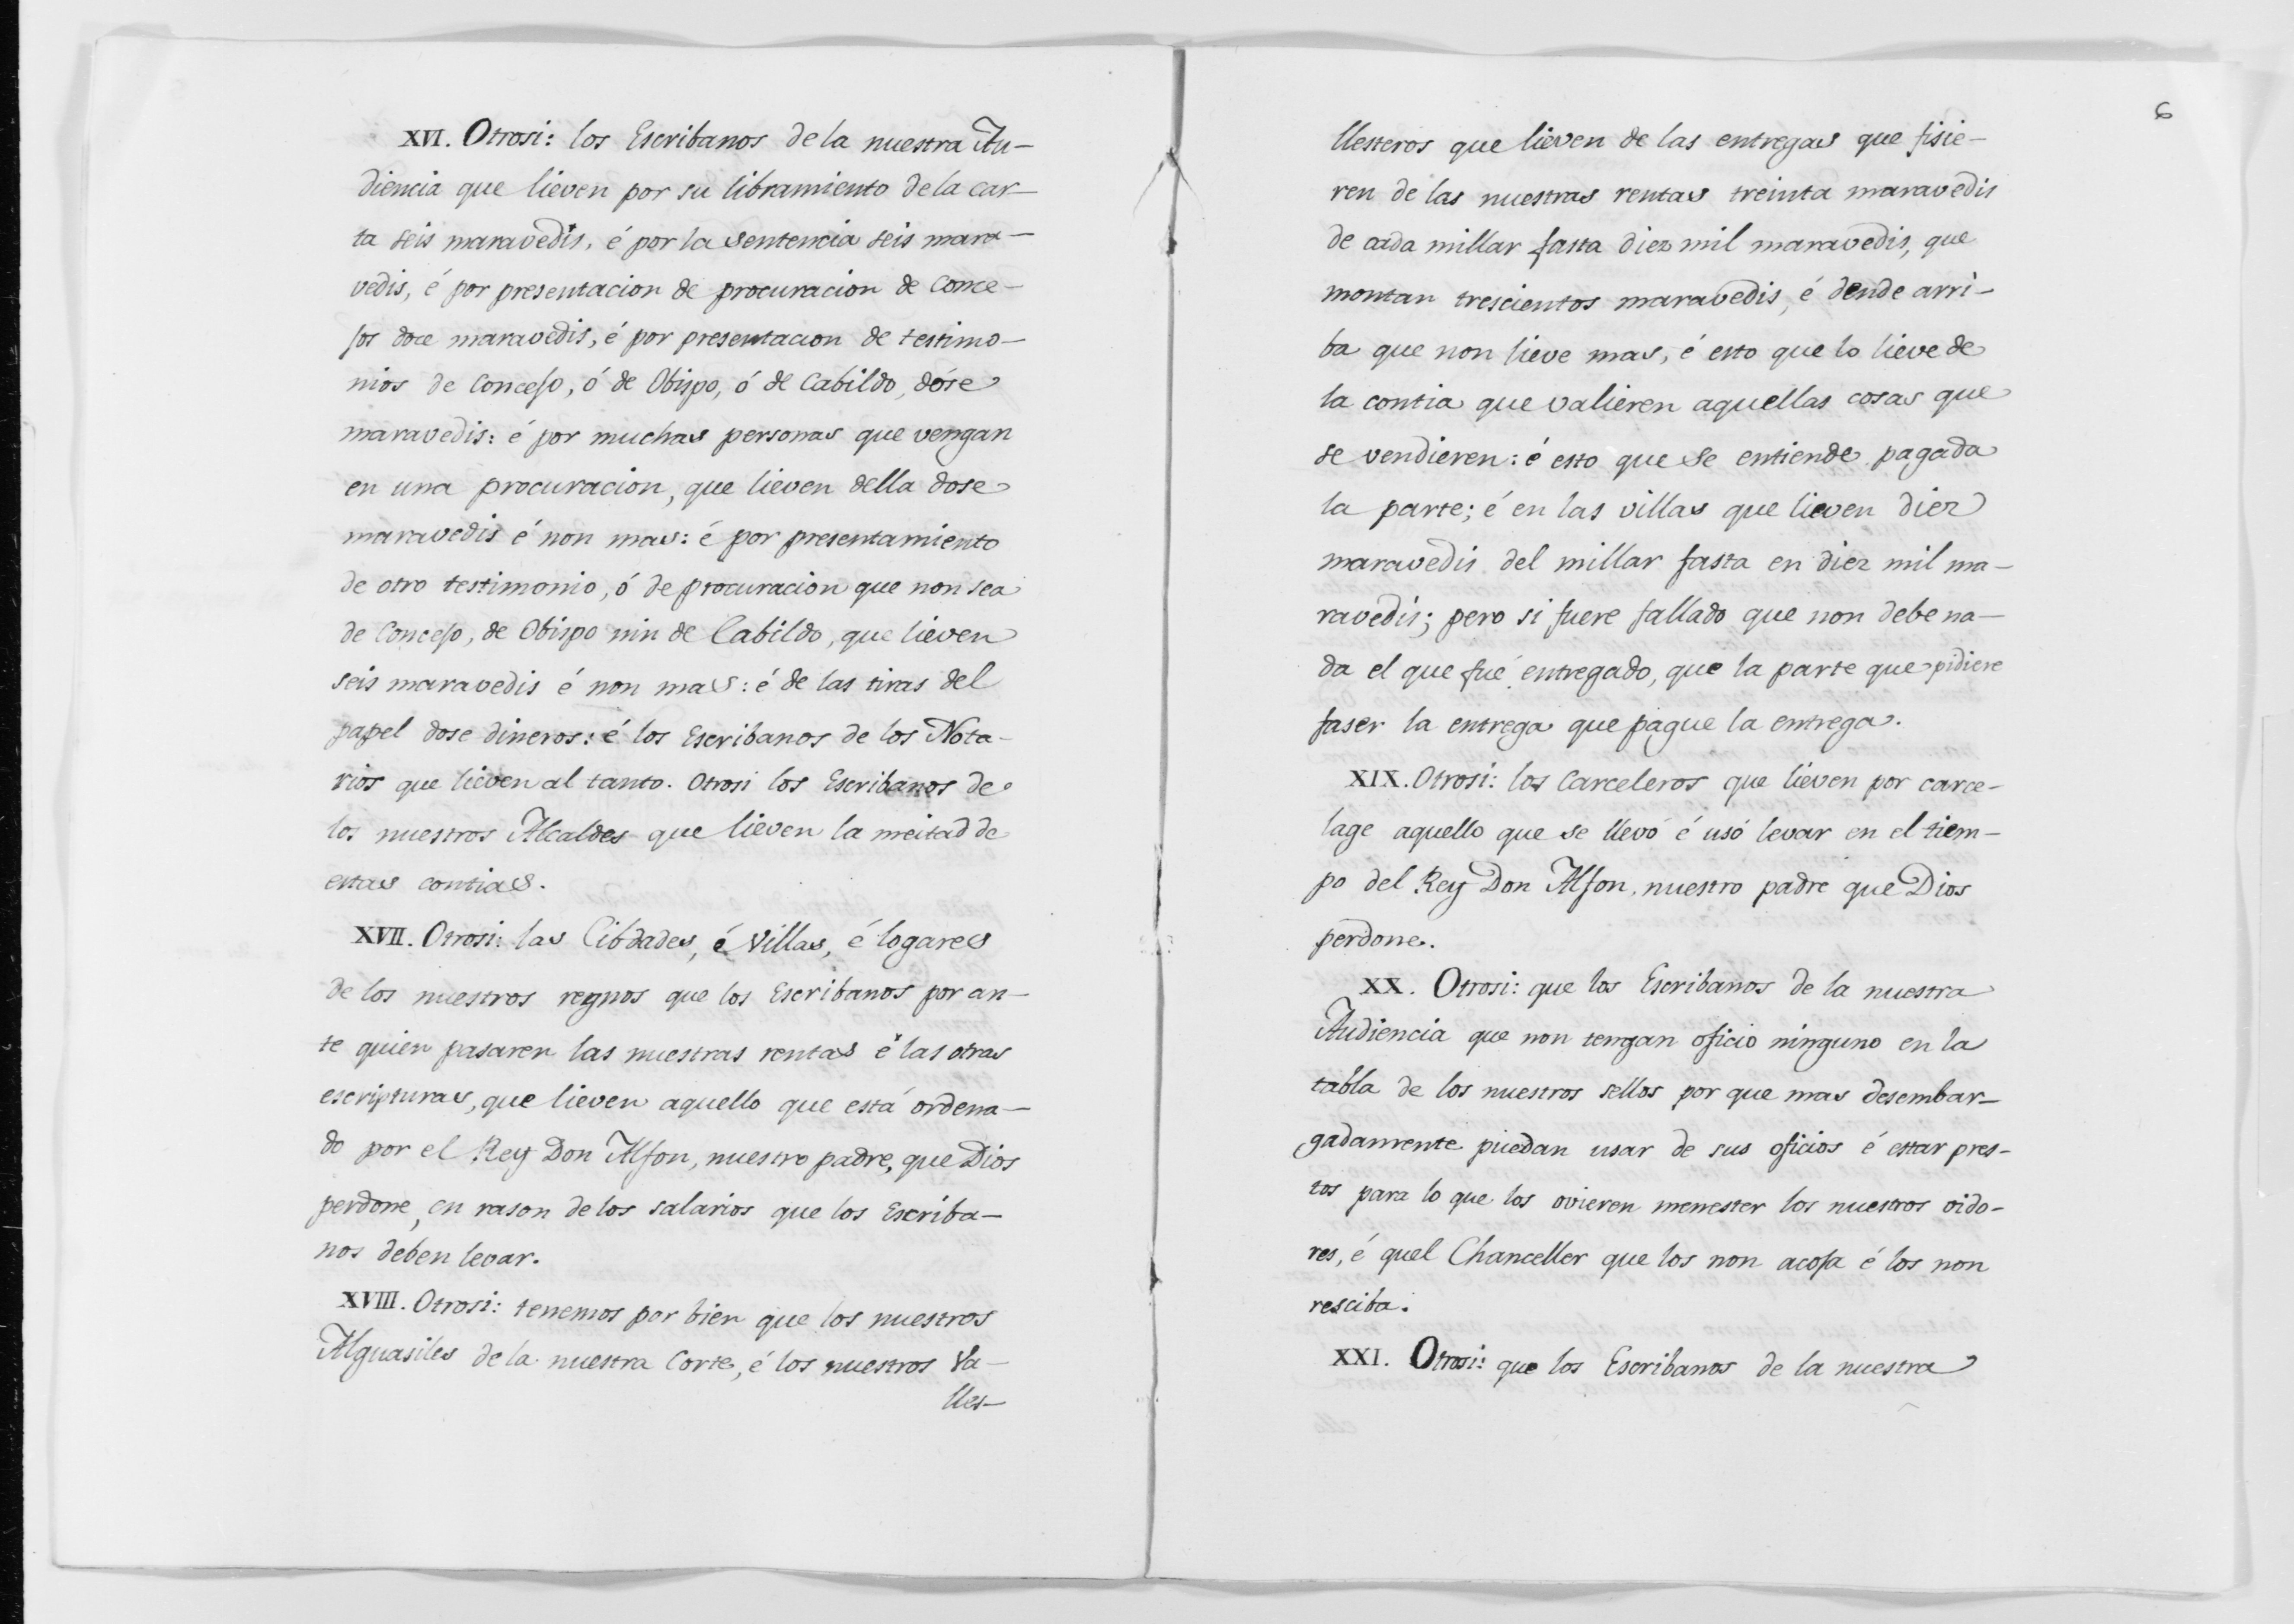 XVI. Otrosi: los Escribanos de la nuestra Au-
diencia que lieven por su libramiento de la car-
ta seis maravedis, é por la sentencia seis mara-
vedis, é por presentacion de procuracion de Conce-
jos doce maravedis, é por presentacion de testimo-
nios de Concejo, ó de Obispo, ó de Cabildo, dose
maravedis: é por muchas personas que vengan
en una procuracion, que lieven della dose
maravedis é non mas: é por presentamiento
de otro testimonio, ó de procuracion que non sea
de Concejo, de Obispo nin de Cabildo, que lieven
seis maravedis é non mas: é de las tiras del
papel dose dineros: é los Escribanos de los Nota-
rios que lieven al tanto. Otrosi los Escribanos de
los nuestros Alcaldes que lieven la meitad de
estas contias.
XVII. Otrosi: las Cibdades, é Villas, é logares
de los nuestros regnos que los Escribanos por an-
te quien pasaren las nuestras rentas é las otras
escripturas, que lieven aquello que está ordena-
do por el Rey Don Alfon, nuestro padre, que Dios
perdone, en rason de los salarios que los Escriba-
nos deben levar.
XVIII. Otrosi: tenemos por bien que los nuestros
Alguasiles de la nuestra Corte, é los nuestros Va-
lles-
6
llesteros que lieven de las entregas que fisie-
ren de las nuestras rentas treinta maravedis
de cada millar fasta diez mil maravedis, que
montan trescientos maravedis, é dende arri-
ba que non lieve mas, é esto que lo lieve de
la contia que valieren aquellas cosas que
se vendieren: é esto que se entiende pagada
la parte; é en las villas que lieven diez
maravedis del millar fasta en diez mil ma-
ravedis; pero si fuere fallado que non debe na-
da el que fué entregado, que la parte que pidiere
faser la entrega que pague la entrega.
XIX. Otrosi: los Carceleros que lieven por carce-
lage aquello que se llevó é usó levar en el tiem-
po del Rey Don Alfon, nuestro padre que Dios
perdone.
XX. Otrosi: que los Escribanos de la nuestra
Audiencia que non tengan oficio ninguno en la
tabla de los nuestros sellos por que mas desembar-
gadamente puedan usar de sus oficios é estar pres-
tos para lo que los ovieren menester los nuestros oido-
res, é quel Chanceller que los non acoja é los non
resciba.
XXI. Otrosi: que los Escribanos de la nuestra